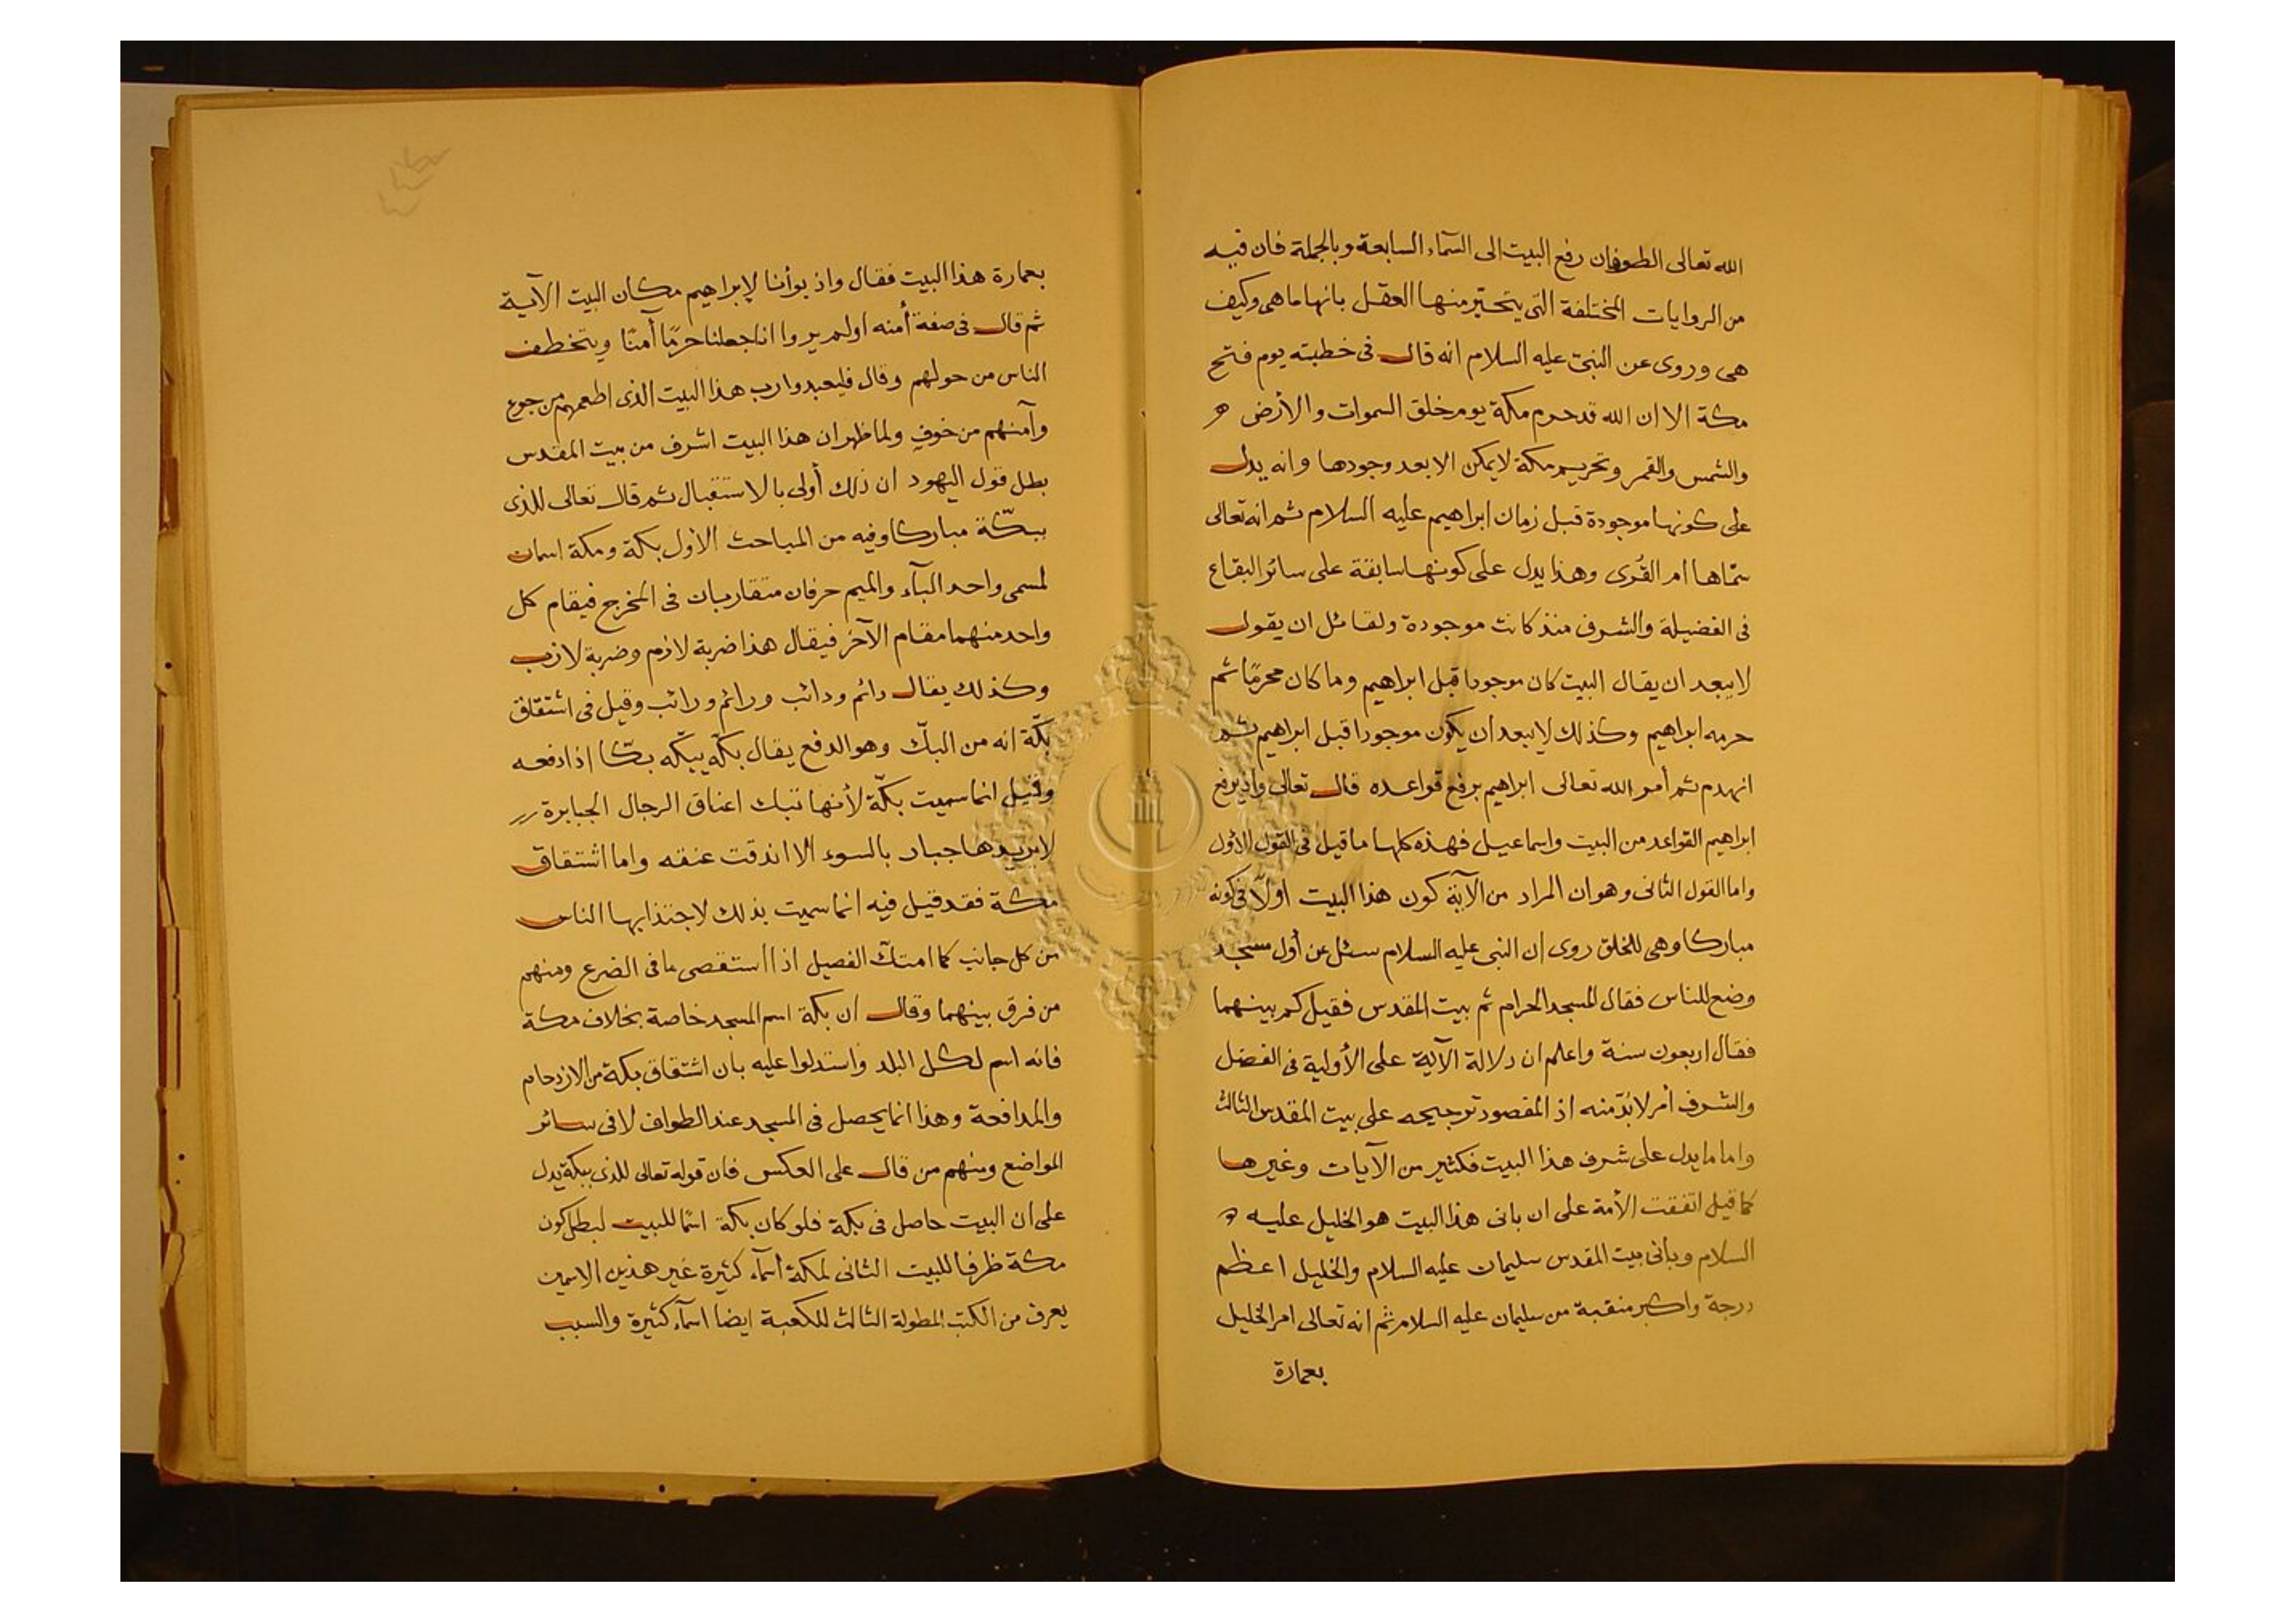 الله تعالى الطوفان رفع البيت الى السمآء السابعة وبالجملة فان فيه
من الروايات المختلفة التى يتحير منها العقل بانها ما هى وكيف
هى وروى عن النبى عليه السلام انه قال فى خطبته يوم فتح
مكة الا ان الله قد حرم مكة يوم خلق السموات والأرض
والشمس والقمر وتحريم مكة لا يمكن الا بعد وجودها وانه يدل
على كونها موجودة قبل زمان ابراهيم عليه السلام ثم انه تعالى
سمّاها ام القُرى وهذا يدل على كونها سابقة على سائر البقاع
فى الفضيلة والشرف منذ كانت موجودة ولقائل ان يقول
لا يبعد ان يقال البيت كان موجودا قبل ابراهيم وما كان محرمًا ثم
حرمه ابراهيم وكذلك لا يبعد ان يكون موجودا قبل ابراهيم ثم
انهدم ثم أمر الله تعالى ابراهيم برفع قواعده قال تعالى واذ يرفع
ابراهيم القواعد من البيت واسماعيل فهذه كلها ما قيل فى القول الأول
واما القول الثانى وهو ان المراد من الآية كون هذا البيت اولًا فى كونه
مباركا وهى للخلق روى ان النبى عليه السلام سئل عن أول مسجد
وضع للناس فقال المسجد الحرام ثم بيت المقدس فقيل كم بينهما
فقال اربعون سنة واعلم ان دلالة الآية على الأولية فى الفضل
والشرف أمر لا بُدّ منه اذ المقصود ترجيحه على بيت المقدس الثالث
واما ما يدل على شرف هذا البيت فكثير من الآيات وغيرها
كما قيل اتفقت الأمة على ان بانى هذا البيت هو الخليل عليه
السلام وبانى بيت المقدس سليمان عليه السلام والخليل اعظم
درجة واكبر منقبة من سليمان عليه السلام ثم انه تعالى امر الخليل
بعمارة
بعمارة هذا البيت فقال واذ بوأنا لإبراهيم مكان البيت الآية
ثم قال فى صفة أمنه اولم يروا انا جعلنا حرمًا آمنًا ويتخطف
الناس من حولهم وقال فليعبدوا رب هذا البيت الذى اطعمهم من جوع
وآمنهم من خوفٍ ولما ظهر ان هذا البيت اشرف من بيت المقدس
بطل قول اليهود ان ذلك أولى بالاستقبال ثم قال تعالى للذى
ببكّة مباركا وفيه من المباحث الأول بكة ومكة اسمان
لمسمى واحد البآء والميم حرفان متقاربان فى المخرج فيقام كل
واحد منهما مقام الآخر فيقال هذا ضربة لازم وضربة لازب
وكذلك يقال دائم ودائب ورائم ورائب وقيل فى اشتقاق
بكّة انه من البكّ وهو الدفع يقال بكّه يبكّه بكّا اذا دفعه
وقيل انما سميت بكّة لأنها تبك اعناق الرجال الجبابرة
لا يريدها جبار بالسوء الا اندقت عنقه واما اشتقاق
مكة فقد قيل فيه انما سميت بذلك لاجتذابها الناس
من كل جانب كما امتكّ الفصيل اذا استقصى ما فى الضرع ومنهم
من فرق بينهما وقال ان بكة اسم المسجد خاصة بخلاف مكة
فانه اسم لكل البلد واستدلوا عليه بان اشتقاق بكة من الازدحام
والمدافعة وهذا انما يحصل فى المسجد عند الطواف لا فى سائر
المواضع ومنهم من قال على العكس فان قوله تعالى للذى ببكة يدل
على ان البيت حاصل فى بكة فلو كان بكة اسمًا للبيت لبطل كون
مكة ظرفا للبيت الثانى لمكة أسمآء كثيرة غير هذين الاسمين
يعرف من الكتب المطولة الثالث للكعبة ايضا اسمآء كثيرة والسبب